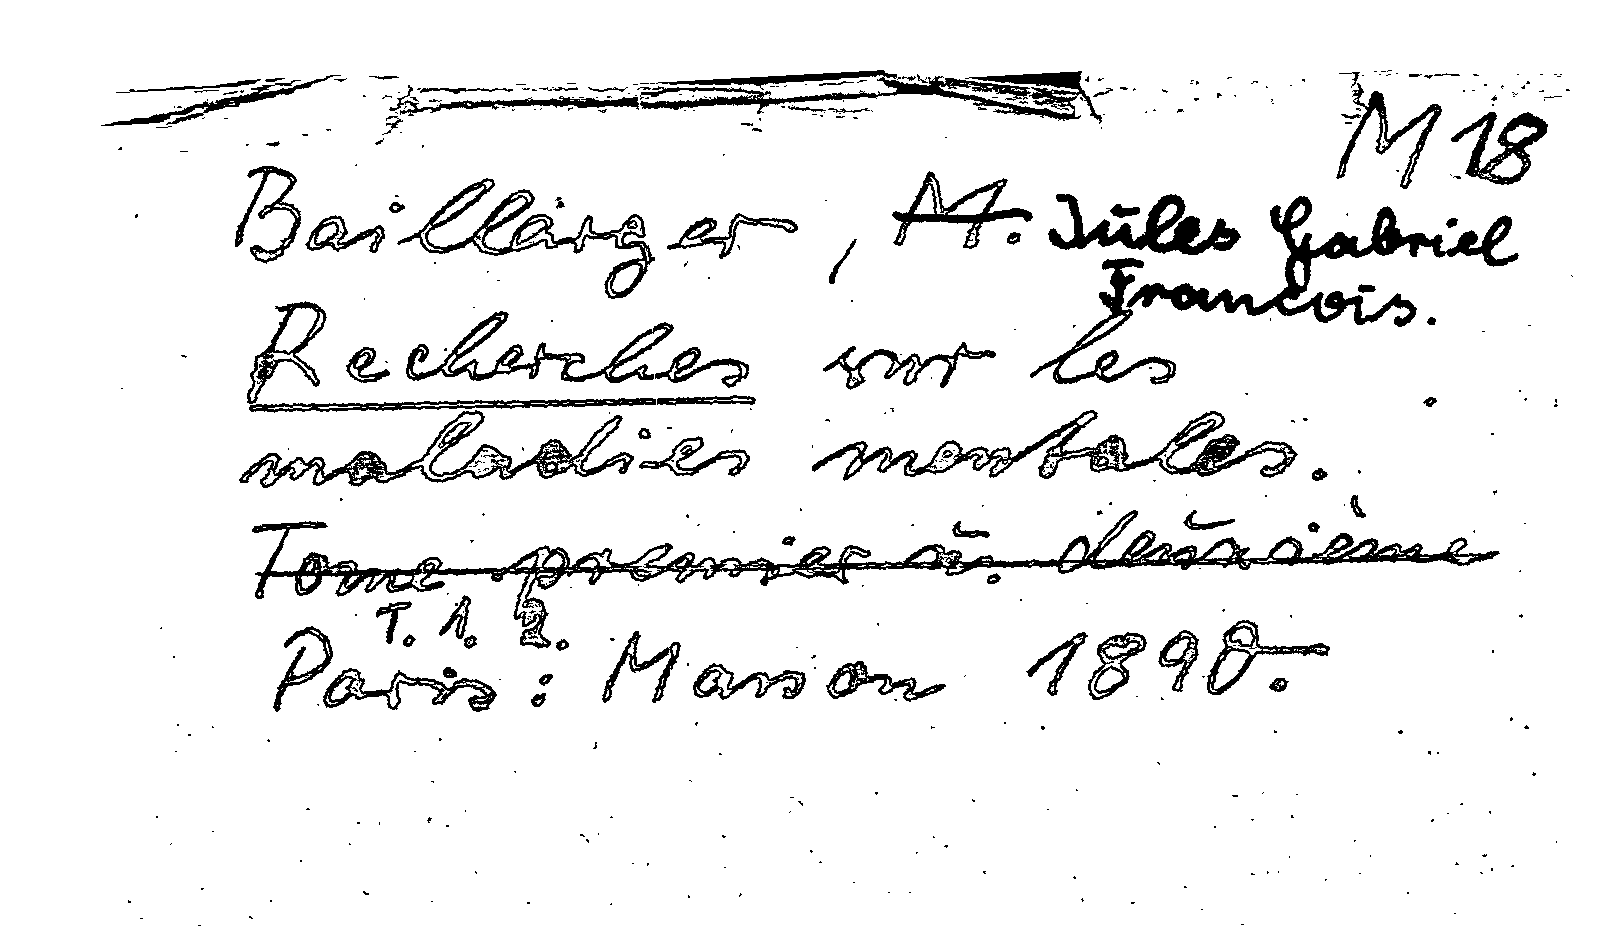 M 18
Baillarger, M. Jules Gabriel
Francois.
Recherches sur les
maladies mentales.
Tome premier u. deuxième
T. 1. 2.
Paris: Masson 1890.